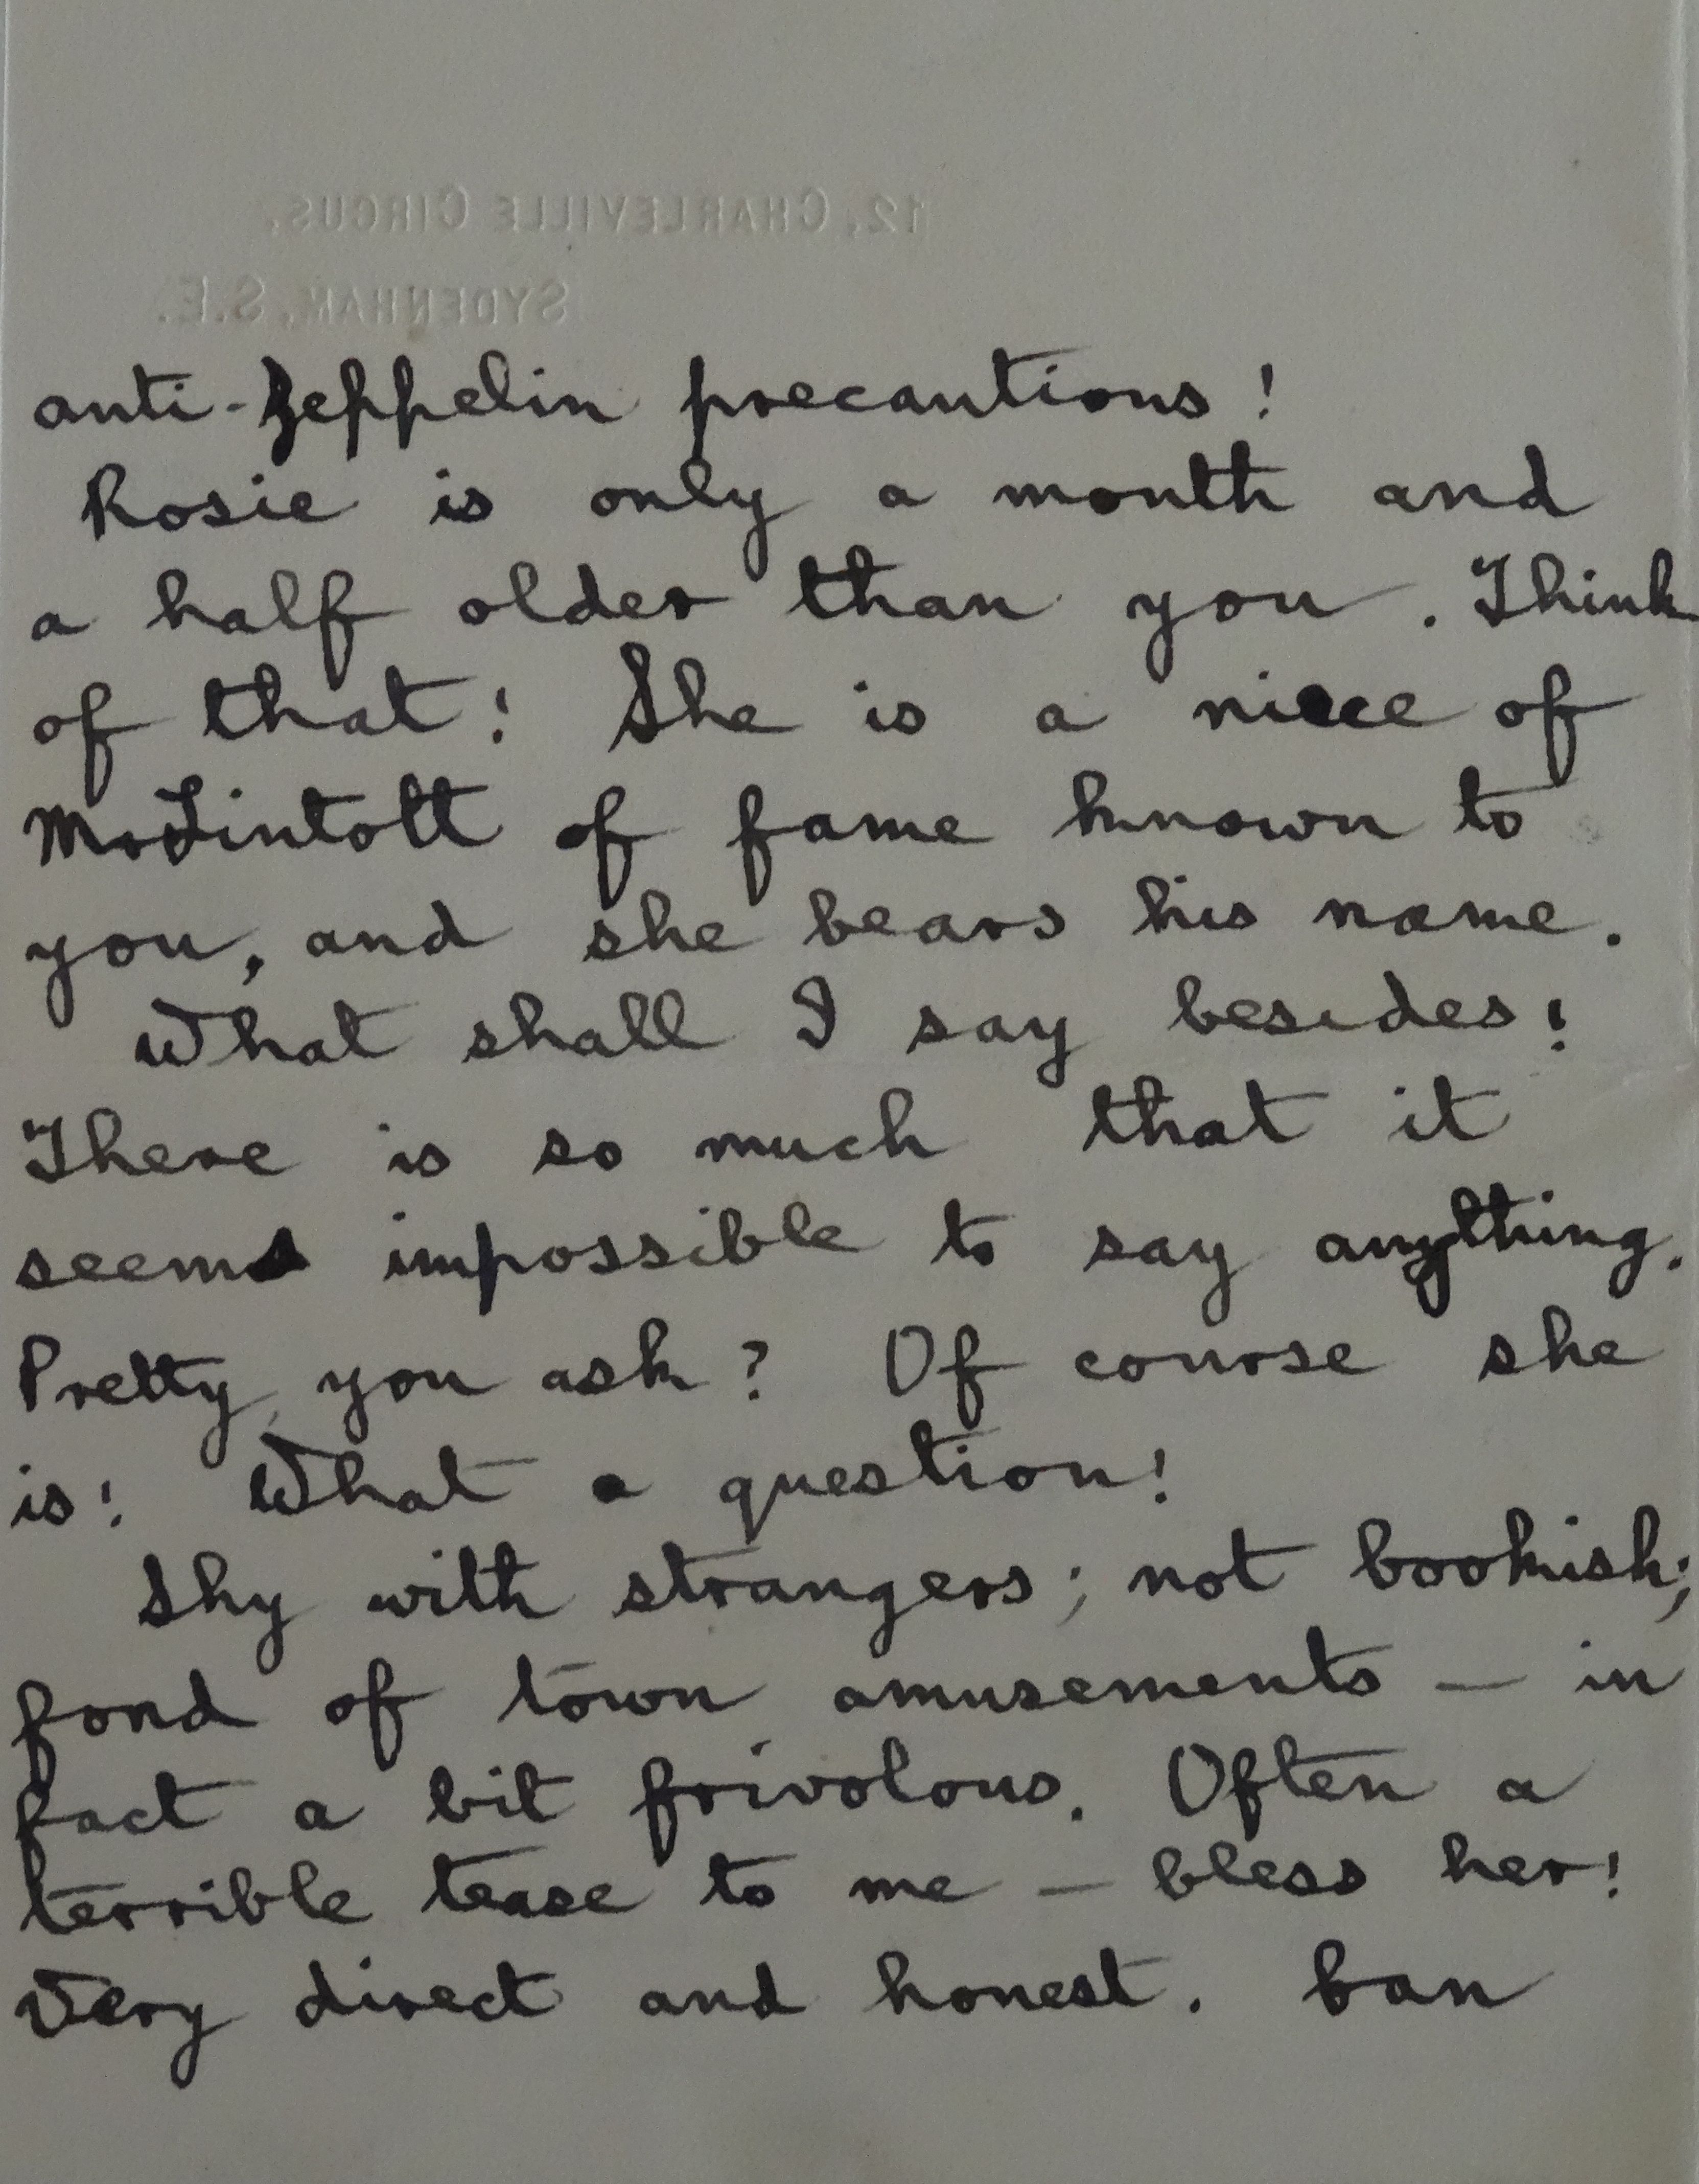 12, CHARLEVILLE CIRCUS,
SYDENHAM, S.E.
anti-Zeppelin precautions!
Rosie is only a month and
a half older than you. Think
of that! She is a niece of
McLintott of fame known to
you, and she bears his name.
What shall I say besides!
There is so much that it
seems impossible to say anything.
Pretty, you ask? Of course she
is! What a question!
Shy with strangers; not bookish;
fond of town amusements — in
fact a bit frivolous. Often a
terrible tease to me — bless her!
Very direct and honest. Can